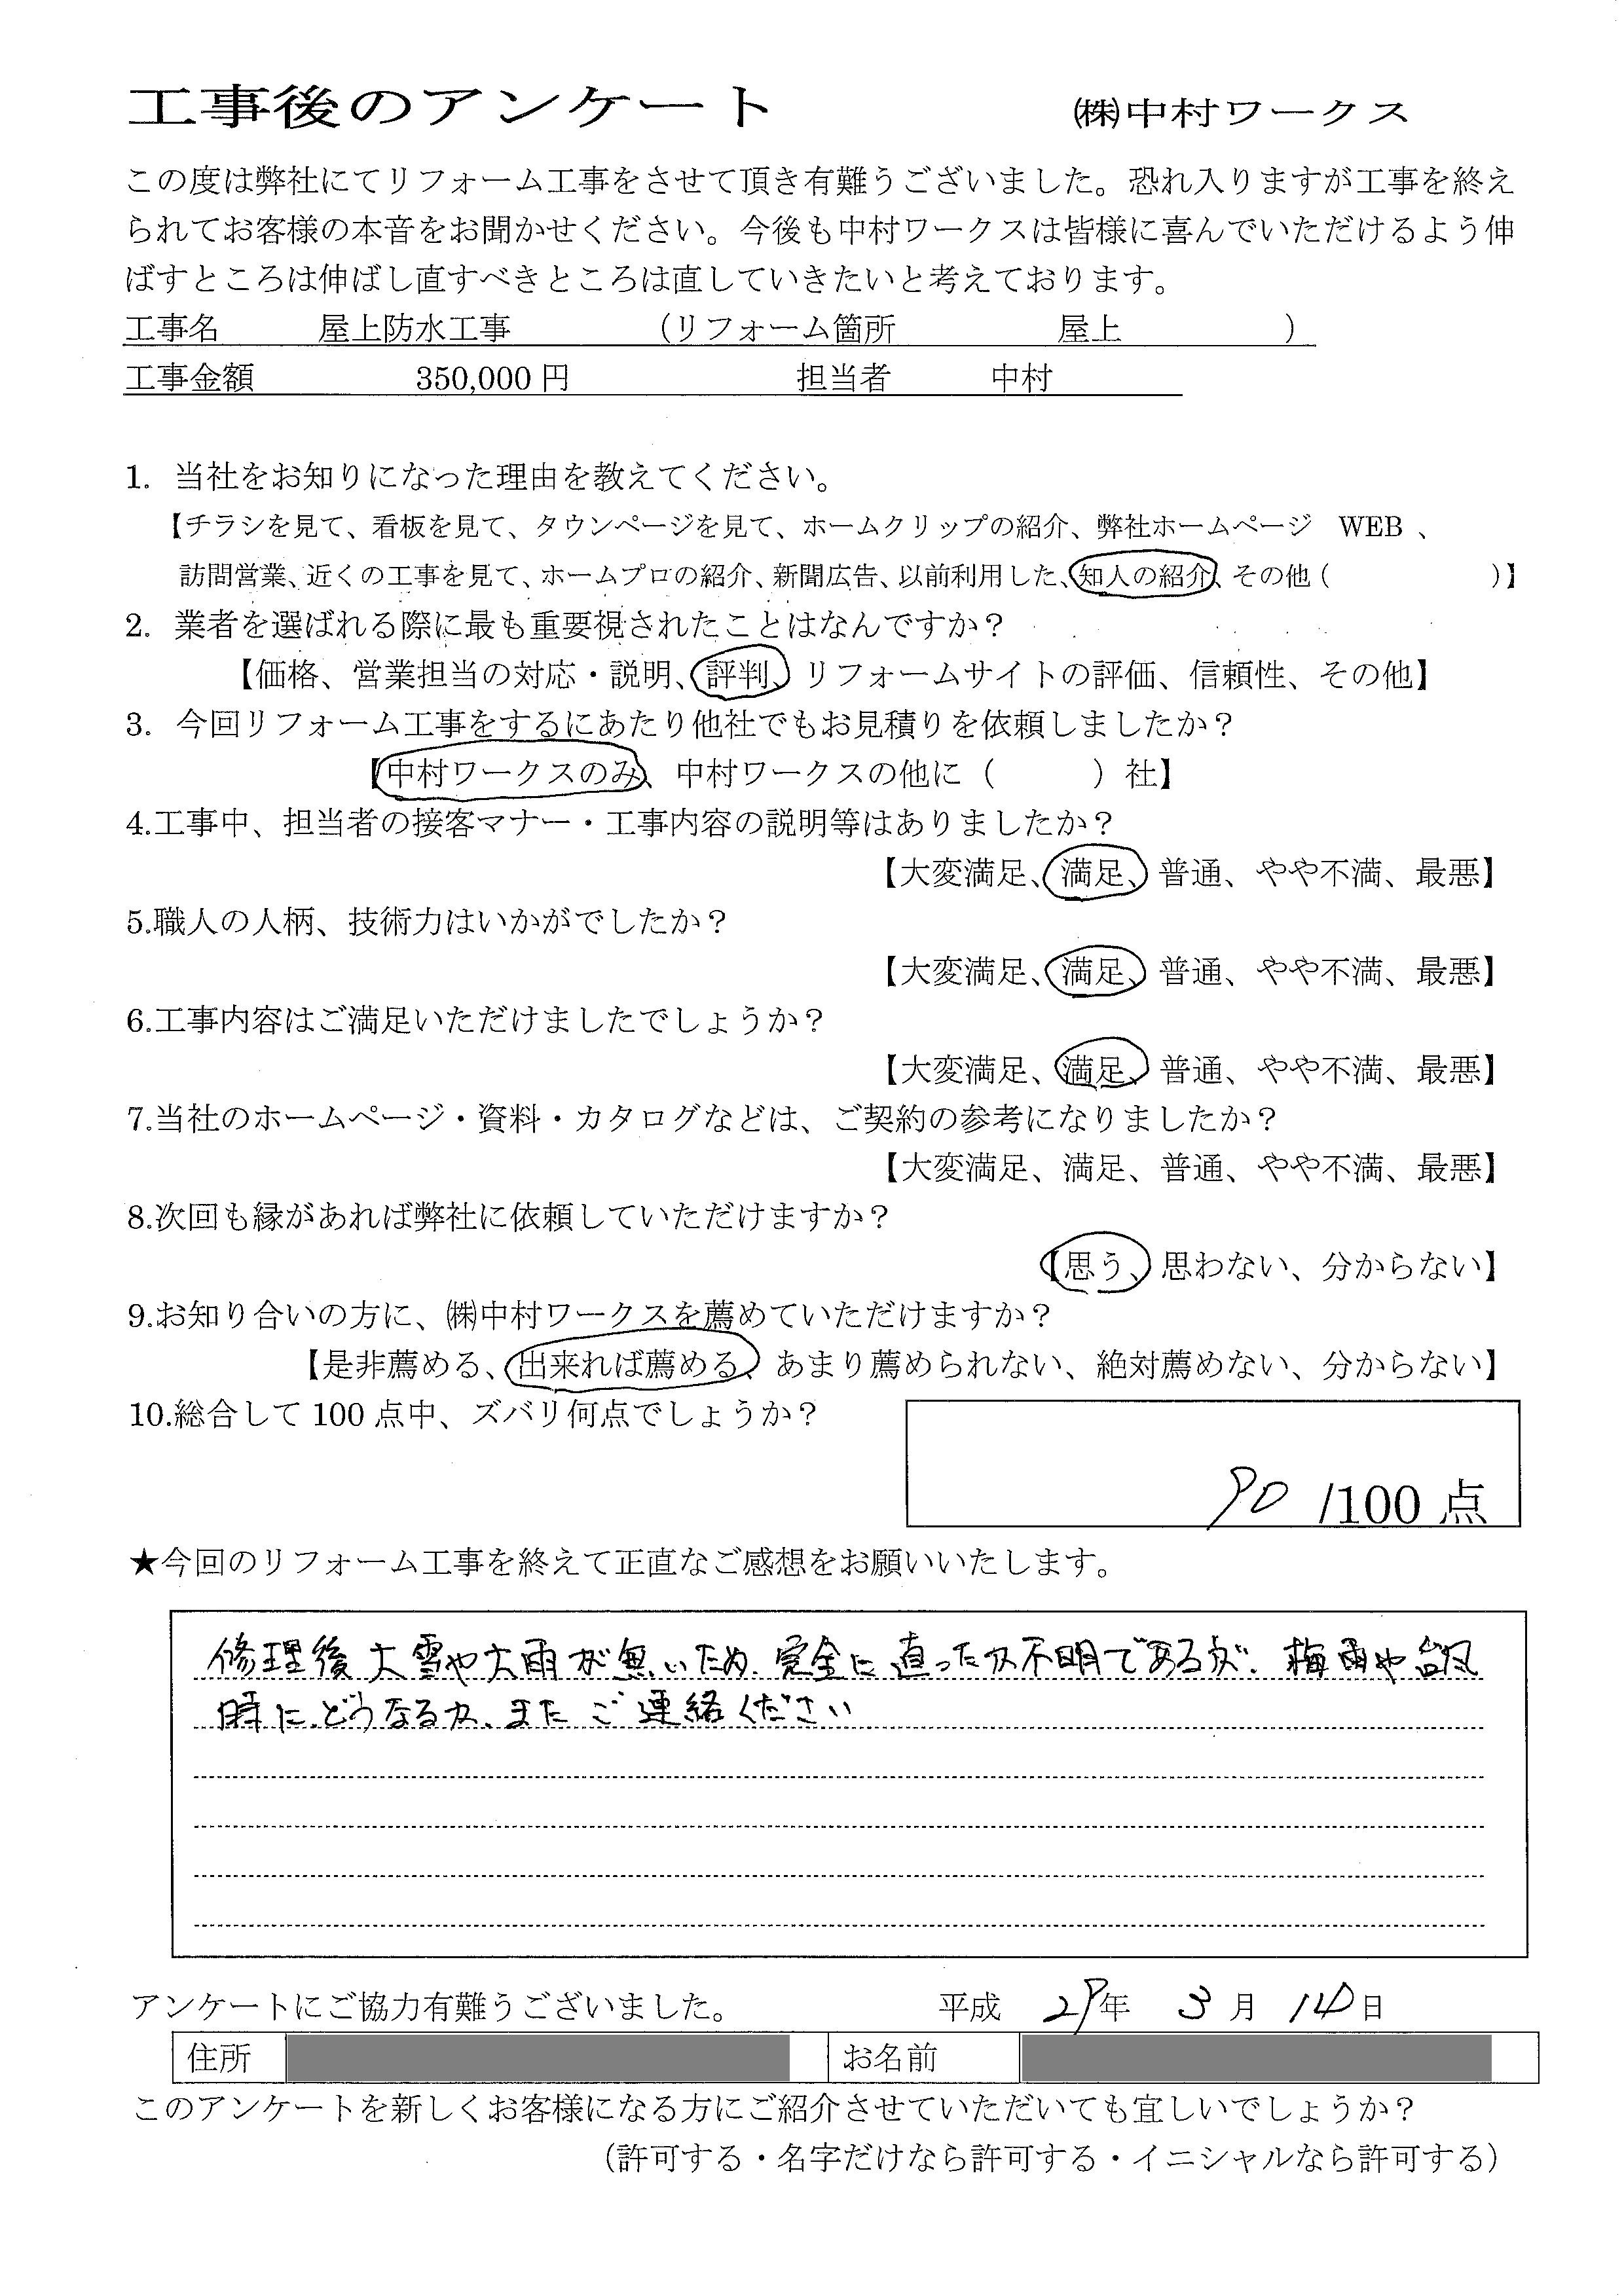 工事後のアンケート ㈱中村ワークス
この度は弊社にてリフォーム工事をさせて頂き有難うございました。恐れ入りますが工事を終え
られてお客様の本音をお聞かせください。今後も中村ワークスは皆様に喜んでいただけるよう伸
ばすところは伸ばし直すべきところは直していきたいと考えております。
工事名 屋上防水工事 （リフォーム箇所 屋上 ）
工事金額 350,000 円 担当者 中村
1. 当社をお知りになった理由を教えてください。
【チラシを見て、看板を見て、タウンページを見て、ホームクリップの紹介、弊社ホームページ WEB 、
訪問営業、近くの工事を見て、ホームプロの紹介、新聞広告、以前利用した、知人の紹介、その他（ ）】
2. 業者を選ばれる際に最も重要視されたことはなんですか？
【価格、営業担当の対応・説明、評判、リフォームサイトの評価、信頼性、その他】
3. 今回リフォーム工事をするにあたり他社でもお見積りを依頼しましたか？
【中村ワークスのみ、中村ワークスの他に（ ）社】
4.工事中、担当者の接客マナー・工事内容の説明等はありましたか？
【大変満足、満足、普通、やや不満、最悪】
5.職人の人柄、技術力はいかがでしたか？
【大変満足、満足、普通、やや不満、最悪】
6.工事内容はご満足いただけましたでしょうか？
【大変満足、満足、普通、やや不満、最悪】
7.当社のホームページ・資料・カタログなどは、ご契約の参考になりましたか？
【大変満足、満足、普通、やや不満、最悪】
8.次回も縁があれば弊社に依頼していただけますか？
【思う、思わない、分からない】
9.お知り合いの方に、㈱中村ワークスを薦めていただけますか？
【是非薦める、出来れば薦める、あまり薦められない、絶対薦めない、分からない】
10.総合して 100 点中、ズバリ何点でしょうか？
90 /100 点
★今回のリフォーム工事を終えて正直なご感想をお願いいたします。
修理後大雪や大雨が無いため、完全に直ったか不明であるが、梅雨や台風
時にどうなるか、またご連絡ください
アンケートにご協力有難うございました。 平成 29年 3月 14日
住所 お名前
このアンケートを新しくお客様になる方にご紹介させていただいても宜しいでしょうか？
（許可する・名字だけなら許可する・イニシャルなら許可する）